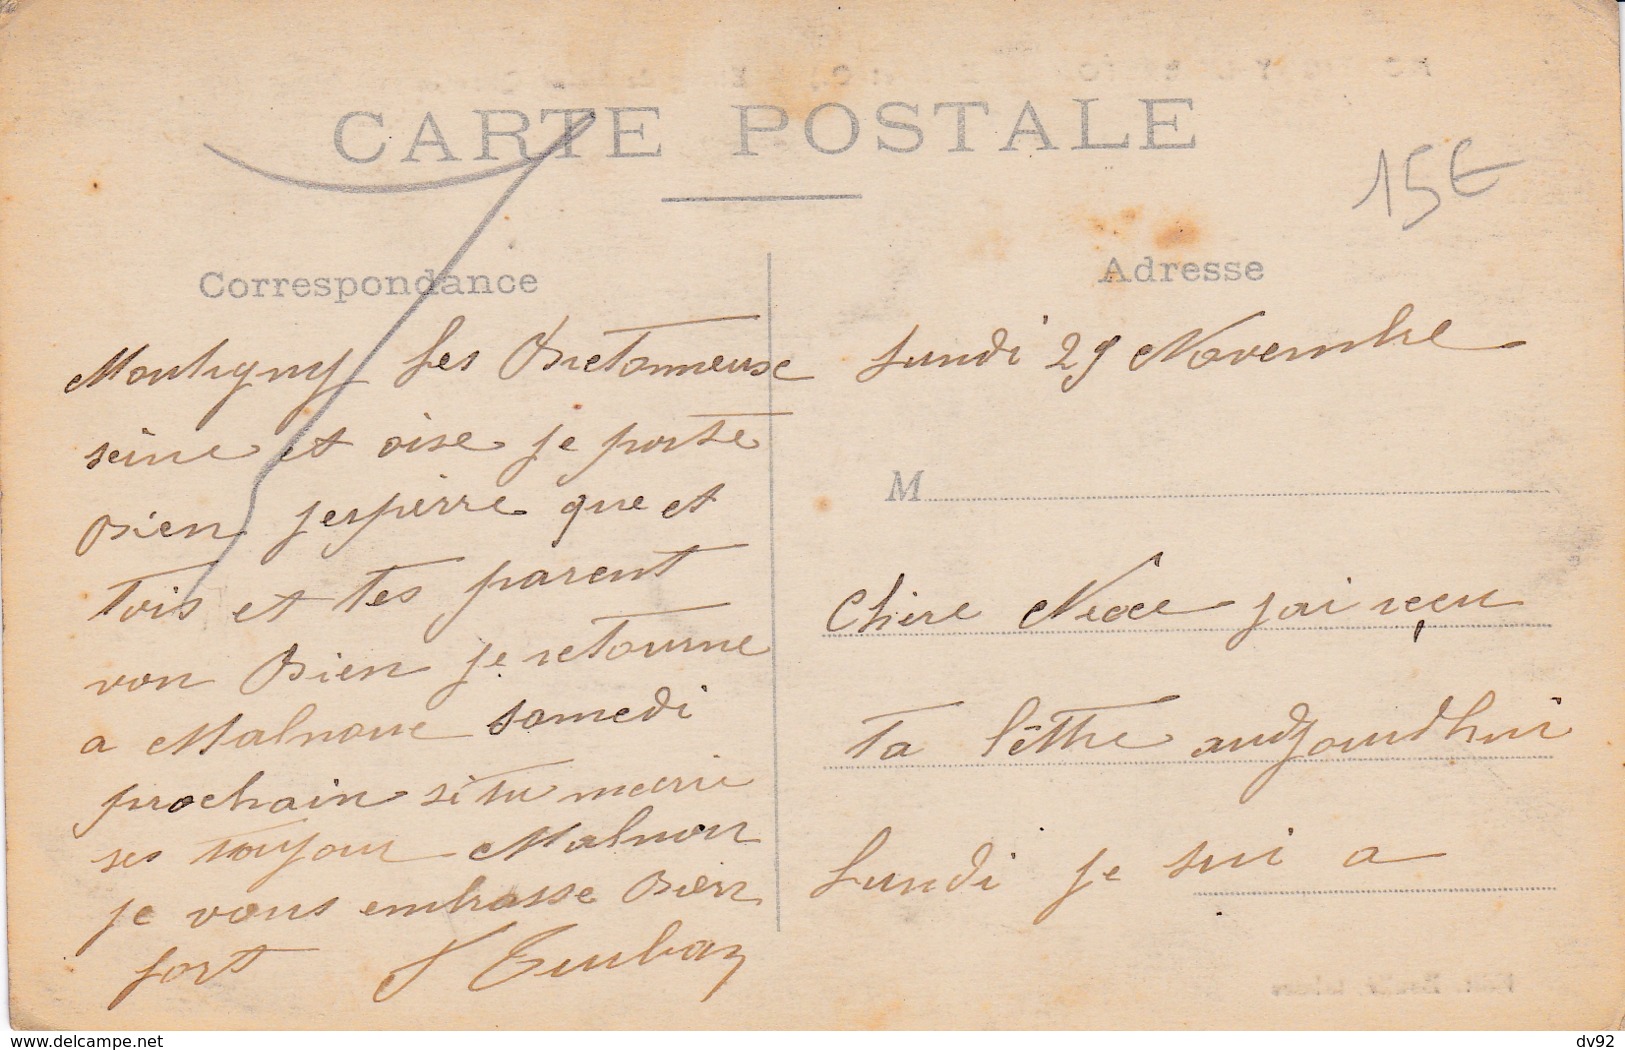 CARTE POSTALE
15€
Correspondance
Adresse
Lundi 29 Novembre
M
Chère Niece jai reçu
ta lettre audjourdhui
Lundi je sui a
Montigny les Bretonneuse
seine et oise je porte
Bien jespèrre que et
tois et tes parent
von Bien je retourne
a Malnoue samedi
prochain si tu mecrie
ses toujour Malnou
je vous embrasse Bien
fort
www.delcampe.net
dv92